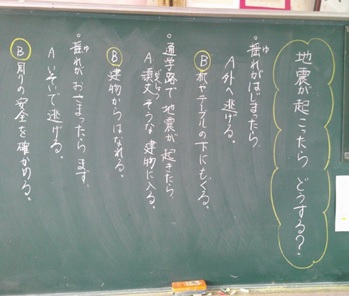 地震が起こったら どうする?
。揺れがはじまったら
A 外へ逃げる。
B 机やテーブルの下にもぐる。
。通学路で地震が起きたら
A 頑丈そうな建物に入る。
B 建物からはなれる。
。揺れがおさまったらまず、
A いそいで逃げる。
B 周りの安全を確かめる。